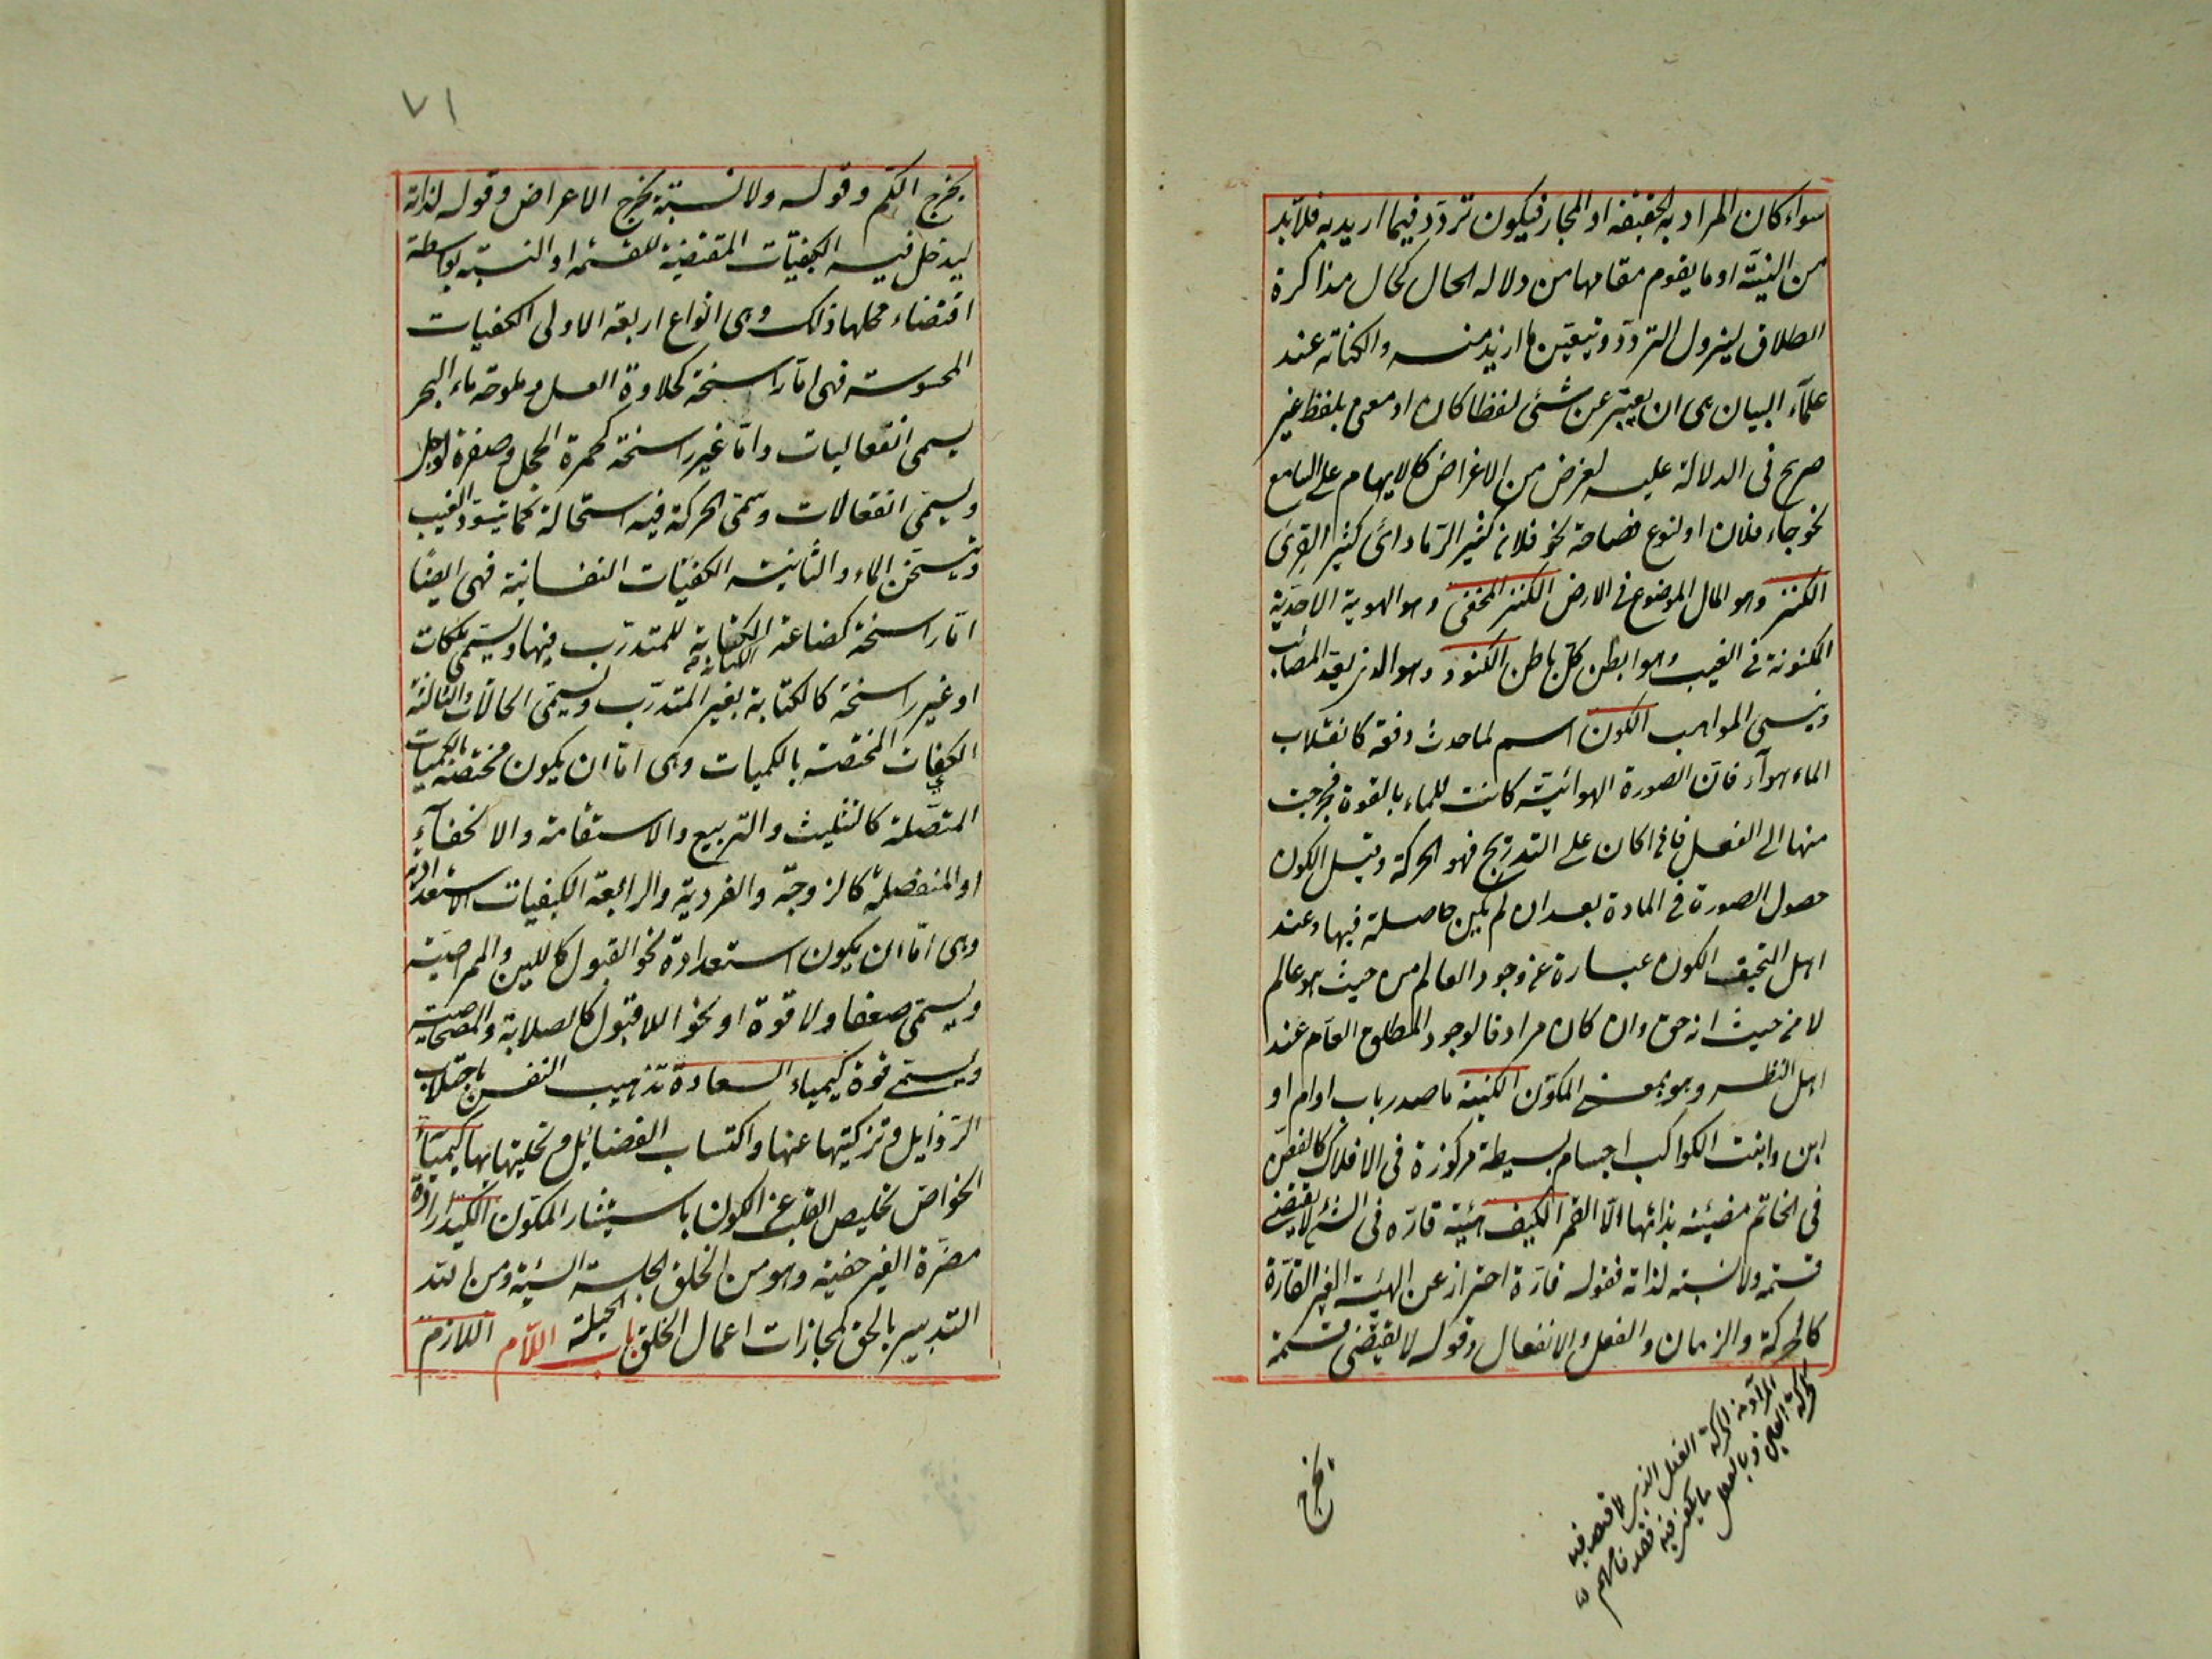 سواء كان المراد به الحقيقة او المجاز فيكون تردد فيما اريد به فلابد
من النيّة او ما يقوم مقامها من دلالة الحال كحال مذاكرة
الطلاق ليزول التردد ويتعين ما اريد منه والكناية عند
علماء البيان هى ان يعبر عن شئ لفظا كان او معنى بلفظ غير
صريح فى الدلالة عليه لغرض من الاغراض كالايهام على السامع
نحو جاء فلان او لنوع فصاحة نحو فلان كثير الرماد اى كثير القرى
الكنز وهو المال الموضوع فى الارض الكنز المخفى وهو الهوية الاحدية
المكنونة فى الغيب وهو ابطن كل باطن الكنود وهو الذى يعد المصائب
وينسى المواهب الكون اسم لما حدث دفعة كانقلاب
الماء هواء فان الصورة الهوائية كانت للماء بالقوة فخرجت
منها الى الفعل فاذا كان على التدريج فهو الحركة وقيل الكون
حصول الصورة فى المادة بعد ان لم يكن حاصلة فيها وعند
اهل التحقيق الكون عبارة عن وجود العالم من حيث هو عالم
لا من حيث انه حق وان كان مرادفا لوجود المطلق العام عند
اهل النظر وهو بمعنى المكون الكنية ما صدر باب او ام او
ابن وابنت الكواكب اجسام بسيطة مركوزة فى الافلاك كالفص
فى الخاتم مضيئة بذاتها الا القمر الكيف هيئة قارة فى الشئ لا يقتضى
قسمة ولا نسبة لذاته فقوله قارة احتراز عن الهيئة الغير القارة
كالحركة والزمان والفعل والانفعال وقوله لا يقتضى قسمة
يخرج
٧١
يخرج الكم وقوله ولا نسبة يخرج الاعراض وقوله لذاته
ليدخل فيه الكيفيات المقتضية للقسمة او النسبة بواسطة
اقتضاء محلها ذلك وهى انواع اربعة الاولى الكفيات
المحسوسة فهى اما راسخة كحلاوة العسل وملوحة ماء البحر
يسمى انفعاليات واما غير راسخة كحمرة الخجل وصفرة الوجل
ويسمى انفعالات وسمى الحركة فيه استحالة كما يتسود العنب
ويتسخن الماء والثانية الكفيات النفسانية فهى ايضا
اما راسخة كضاعة الكفاية للمتدرب فيها ويسمى ملكات
الكتابة
او غير راسخة كالكتابة بغير المتدرب ويسمى الحالات والثالثة
الكفيات المختصة بالكميات وهى اما ان يكون مختصة بالكميات
المتصلة كالتثليث والتربيع والاستقامة والانحناء
او المنفصلة كالزوجة والفردية والرابعة الكيفيات الاستعدادية
وهى اما ان يكون استعدادة نحو القبول كاللين والممراضية
ويسمى ضعفا ولا قوة او نحو اللا قبول كالصلابة والمصحاحية
ويسمى قوة كيمياء السعادة تهذيب النفس باجتلاب
الرذايل وتزكيتها عنها واكتساب الفضايل وتحليتها بها كيمياء
الخواص تخليص القلب عن الكون باستيثار المكون الكيد ارادة
مضرة الغير خفية وهو من الخلق الحيلة السيئة ومن الله
التدبير بالحق لمجازات اعمال الخلق باب اللام اللازم